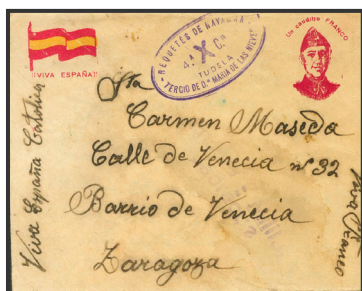 ¡VIVA ESPAÑA!
REQUETÉS DE NAVARRA
4ª X Cª
TUDELA
TERCIO DE Dª MARIA DE LAS NIEVES
Un caudillo FRANCO
Sta
Carmen Maseda
Calle de Venecia nº 32
Barrio de Venecia
Zaragoza
Viva España Catolica
Viva Franco